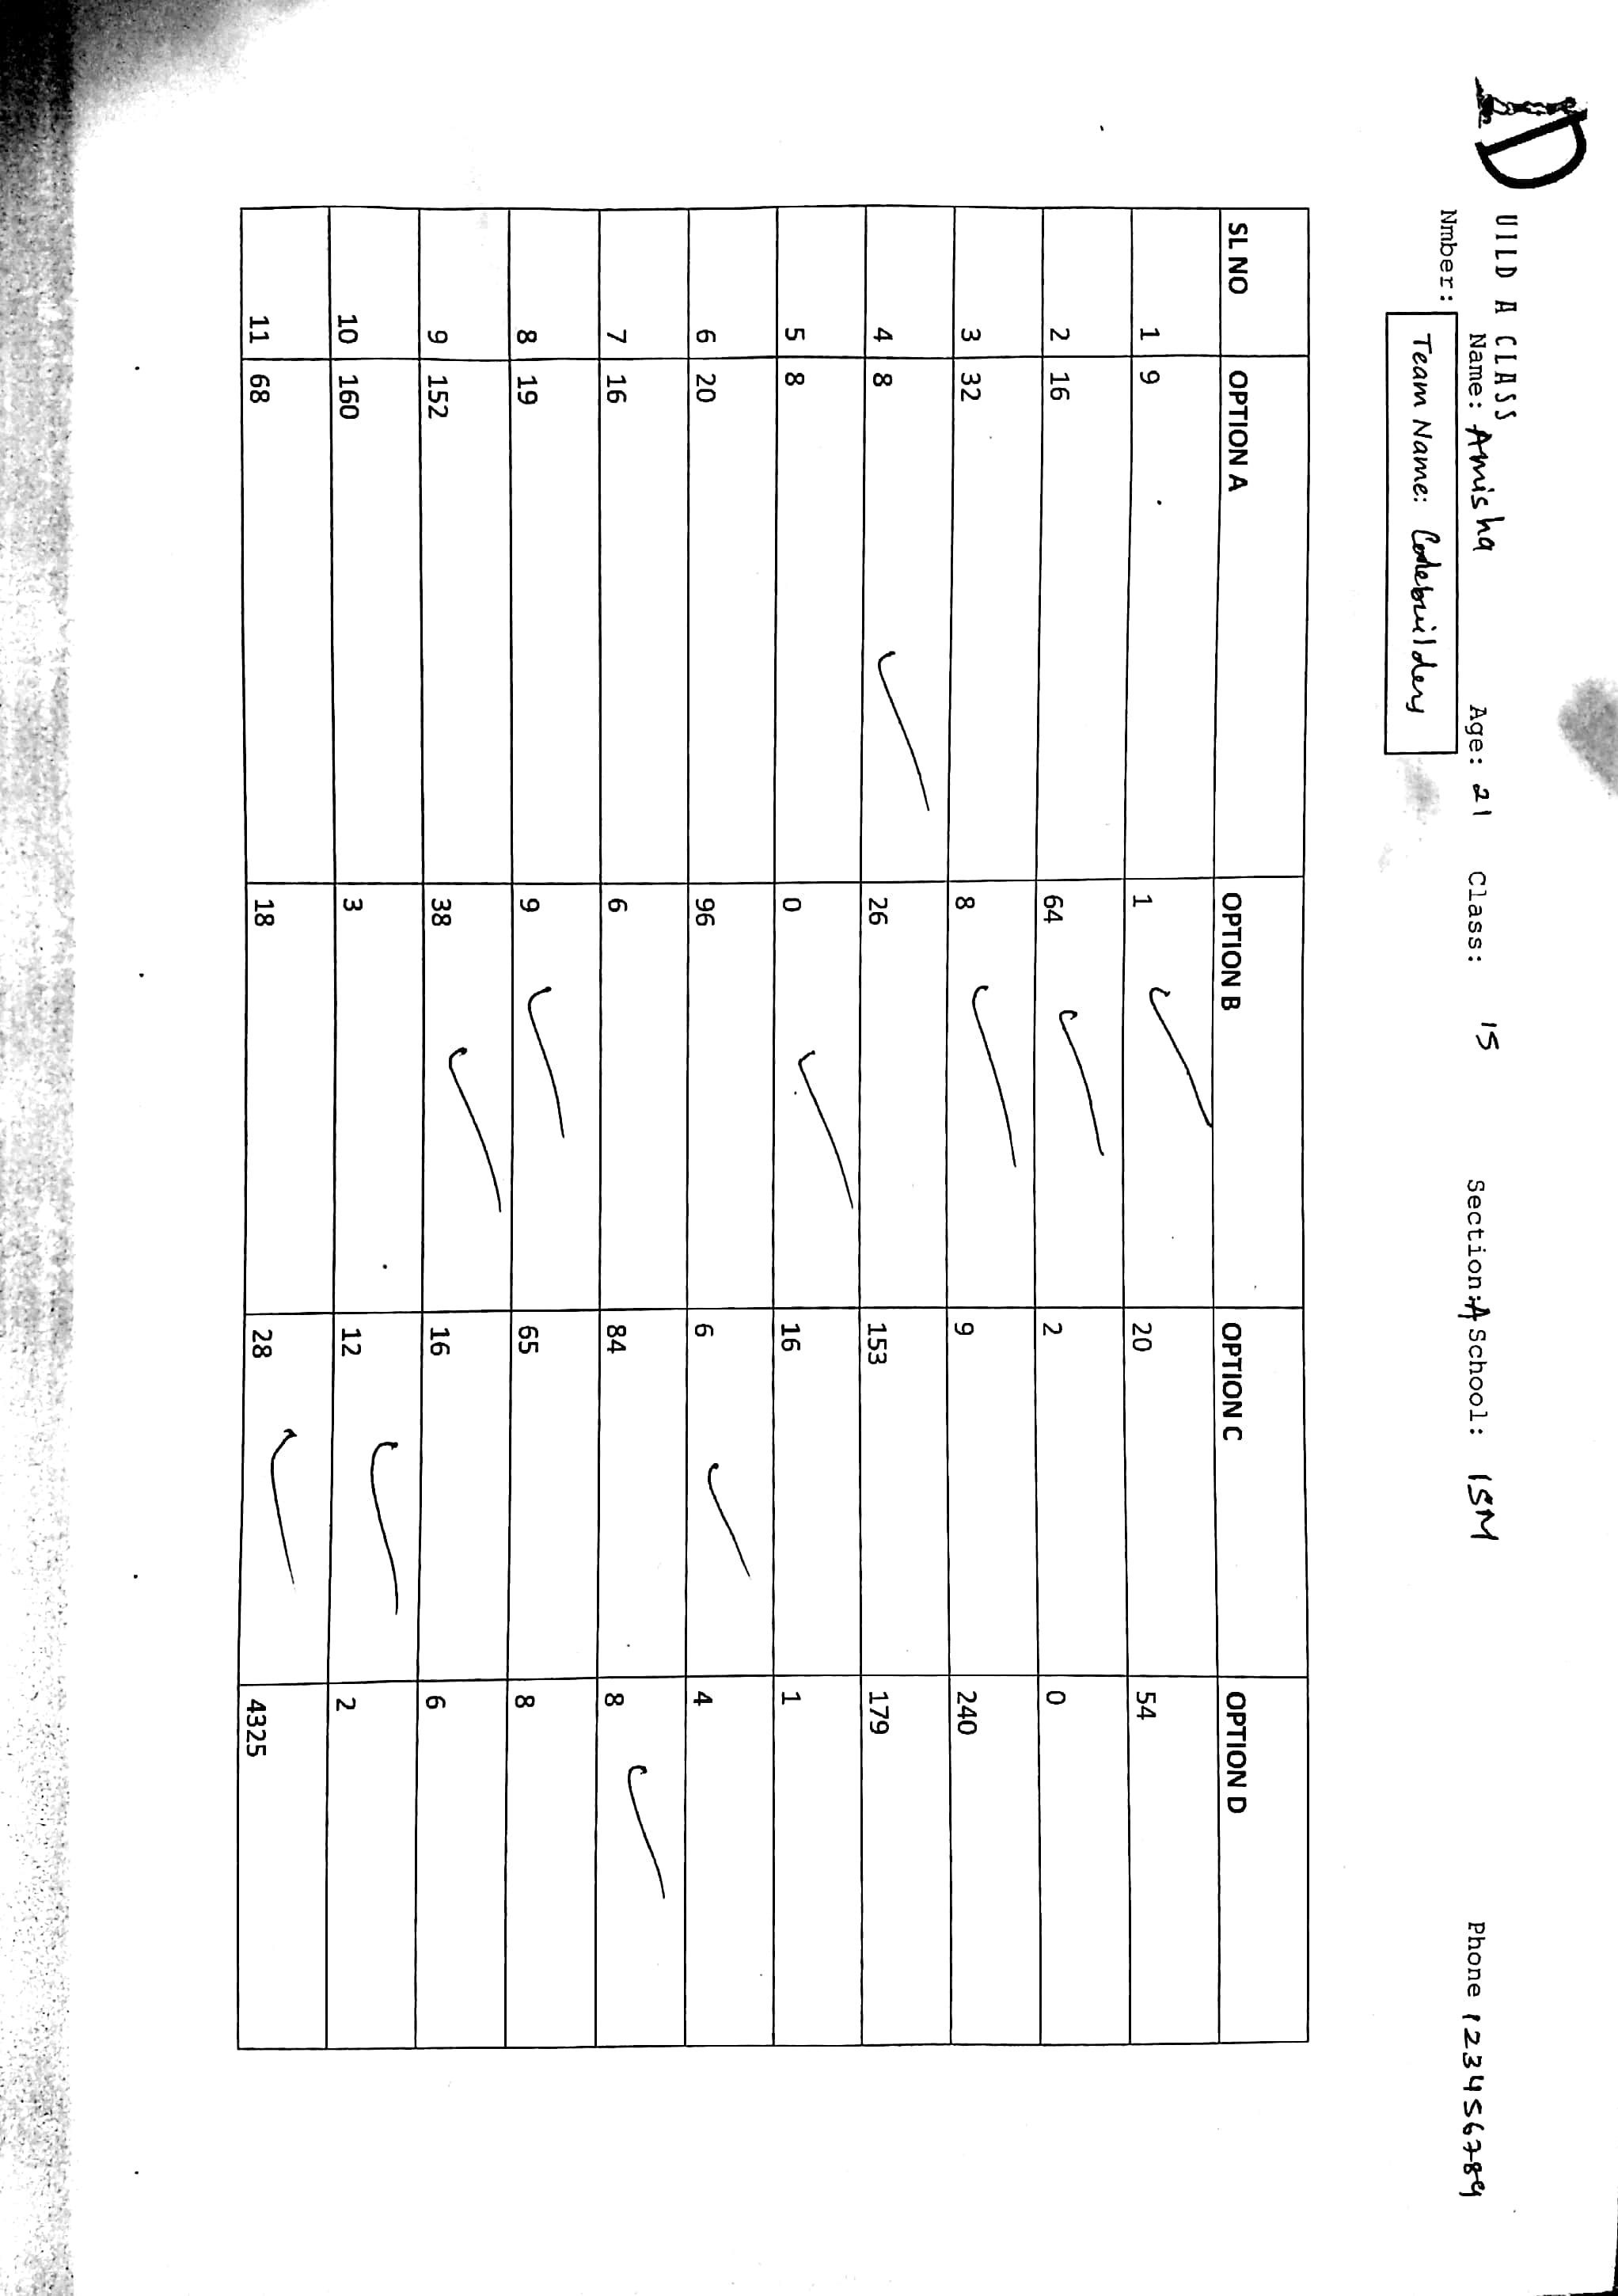 D
UILD A CLASS
Name: Amisha Age: 21 Class: 15 Section: A School: ISM Phone 123456789
Nmber:
Team Name: Codebuilders
SL NO OPTION A OPTION B OPTION C OPTION D
1 9 1 ✓ 20 54
2 16 64 ✓ 2 0
3 32 8 ✓ 9 240
4 8 ✓ 26 153 179
5 8 0 ✓ 16 1
6 20 96 6 ✓ 4
7 16 6 84 8 ✓
8 19 9 ✓ 65 8
9 152 38 ✓ 16 6
10 160 3 12 ✓ 2
11 68 18 28 ✓ 4325